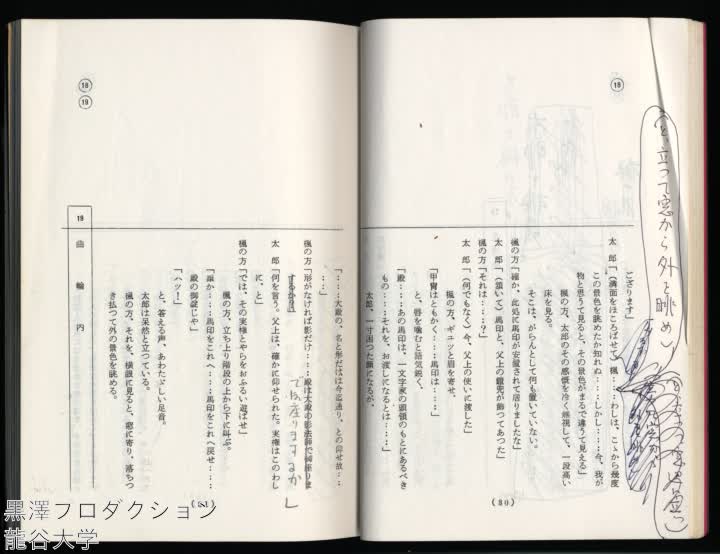 18
(と、立つて窓から外を眺め)
ござります」
太　郎「(満面をほころばせて)楓‥‥わしは、こゝから幾度
この景色を眺めたか知れぬ‥‥しかし‥‥今、我が
物と思うて見ると、その景色がまるで違うて見える」
楓の方、太郎のその感慨を冷く無視して、一段高い
床を見る。
そこは、がらんとして何も置いていない。
楓の方「確か、此処に馬印が安置されて居りましたな」
太　郎「(頷いて)馬印と、父上の鎧兜が飾つてあつた」
楓の方「それは‥‥？」
太　郎「(何でもなく)今、父上の使いに渡した」
楓の方、ギユッと眉を寄せ、
「甲冑はともかく‥‥馬印は‥‥」
と、唇を噛むと語気鋭く、
「殿‥‥あの馬印は、一文字家の頭領のもとにあるべき
もの‥‥それを、お渡しになるとは‥‥」
太郎、一寸困つた顔になるが、
(80)
18
19
「‥‥大殿の、名と形だけは今迄通り、との仰せ故‥‥
‥‥」
楓の方「形がなければ影だけ‥‥殿は大殿の影法師で御座りま
するか？」
では座りまするか」
太　郎「何を言う。父上は、確かに仰せられた。実権はこのわし
に、と」
楓の方「では、その実権とやらをおふるい遊ばせ」
楓の方、立ち上り階段の上から下に叫ぶ。
「誰か‥‥馬印をこれへ‥‥馬印をこれへ戻せ‥‥
殿の御諚じや」
「ハッ！」
と、答える声、あわたゞしい足音。
太郎は呆然と立つている。
楓の方、それを、横眼に見ると、窓に寄り、落ちつ
き払つて外の景色を眺める。
19
曲輪内
(81)
黒澤プロダクション
龍谷大学